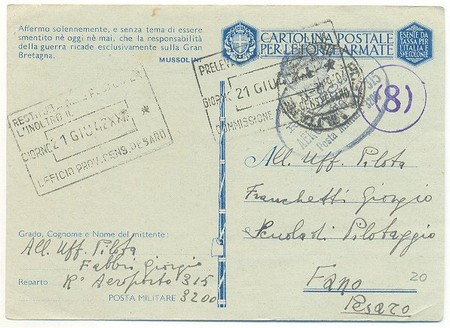 Affermo solennemente, e senza tema di essere
smentito né oggi né mai, che la responsabilità
della guerra ricade esclusivamente sulla Gran
Bretagna.
MUSSOLINI
CARTOLINA POSTALE
PER LE FORZE ARMATE
ESENTE DA
TASSA PER
L'ITALIA E
SPEDIZIONE
L'INOLTRO IL
GIORNO 21 GIU.
UFFICIO PROV. CENS. PESARO
GIORNO 21 GIU.
COMMISSIONE
Posta
(8)
All. Uff. Pilota
Franchetti Giorgio
Scuola di Pilotaggio
Fano
Pesaro
20
Grado, Cognome e Nome del mittente:
All. Uff. Pilota
Fabbri Giorgio
Reparto R° Aeroporto 315
POSTA MILITARE 3200